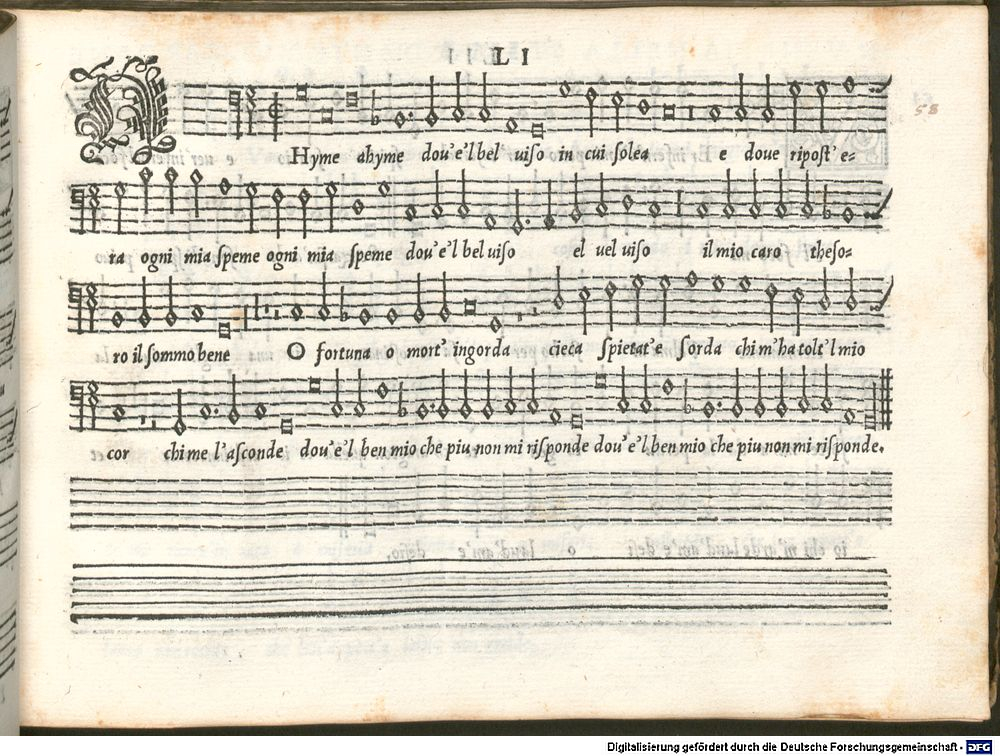 LI
58
AHyme ahyme dou'e'l bel viſo in cui ſolea E e doue ripoſt' e=
ra ogni mia ſpeme ogni mia ſpeme dou'e'l bel uiſo el uel uiſo il mio caro theſo=
ro il ſommo bene O fortuna o mort' ingorda cieca ſpietat'e ſorda chi m'ha tolt'l mio
cor chi me l'aſconde dou'e'l ben mio che piu non mi riſponde dou'e'l ben mio che piu non mi riſponde.
Digitalisierung gefördert durch die Deutsche Forschungsgemeinschaft - DFG